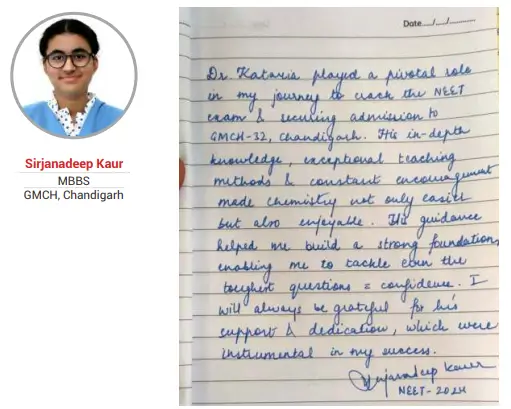 Sirjanadeep Kaur
MBBS
GMCH, Chandigarh
Date..../..../............
Dr. Kataria played a pivotal role
in my journey to crack the NEET
exam & securing admission to
GMCH-32, Chandigarh. His in-depth
knowledge, exceptional teaching
methods & constant encouragement
made chemistry not only easier
but also enjoyable. His guidance
helped me build a strong foundation,
enabling me to tackle even the
toughest questions = confidence. I
will always be grateful for his
support & dedication, which were
instrumental in my success.
Sirjanadeep Kaur
NEET-2024